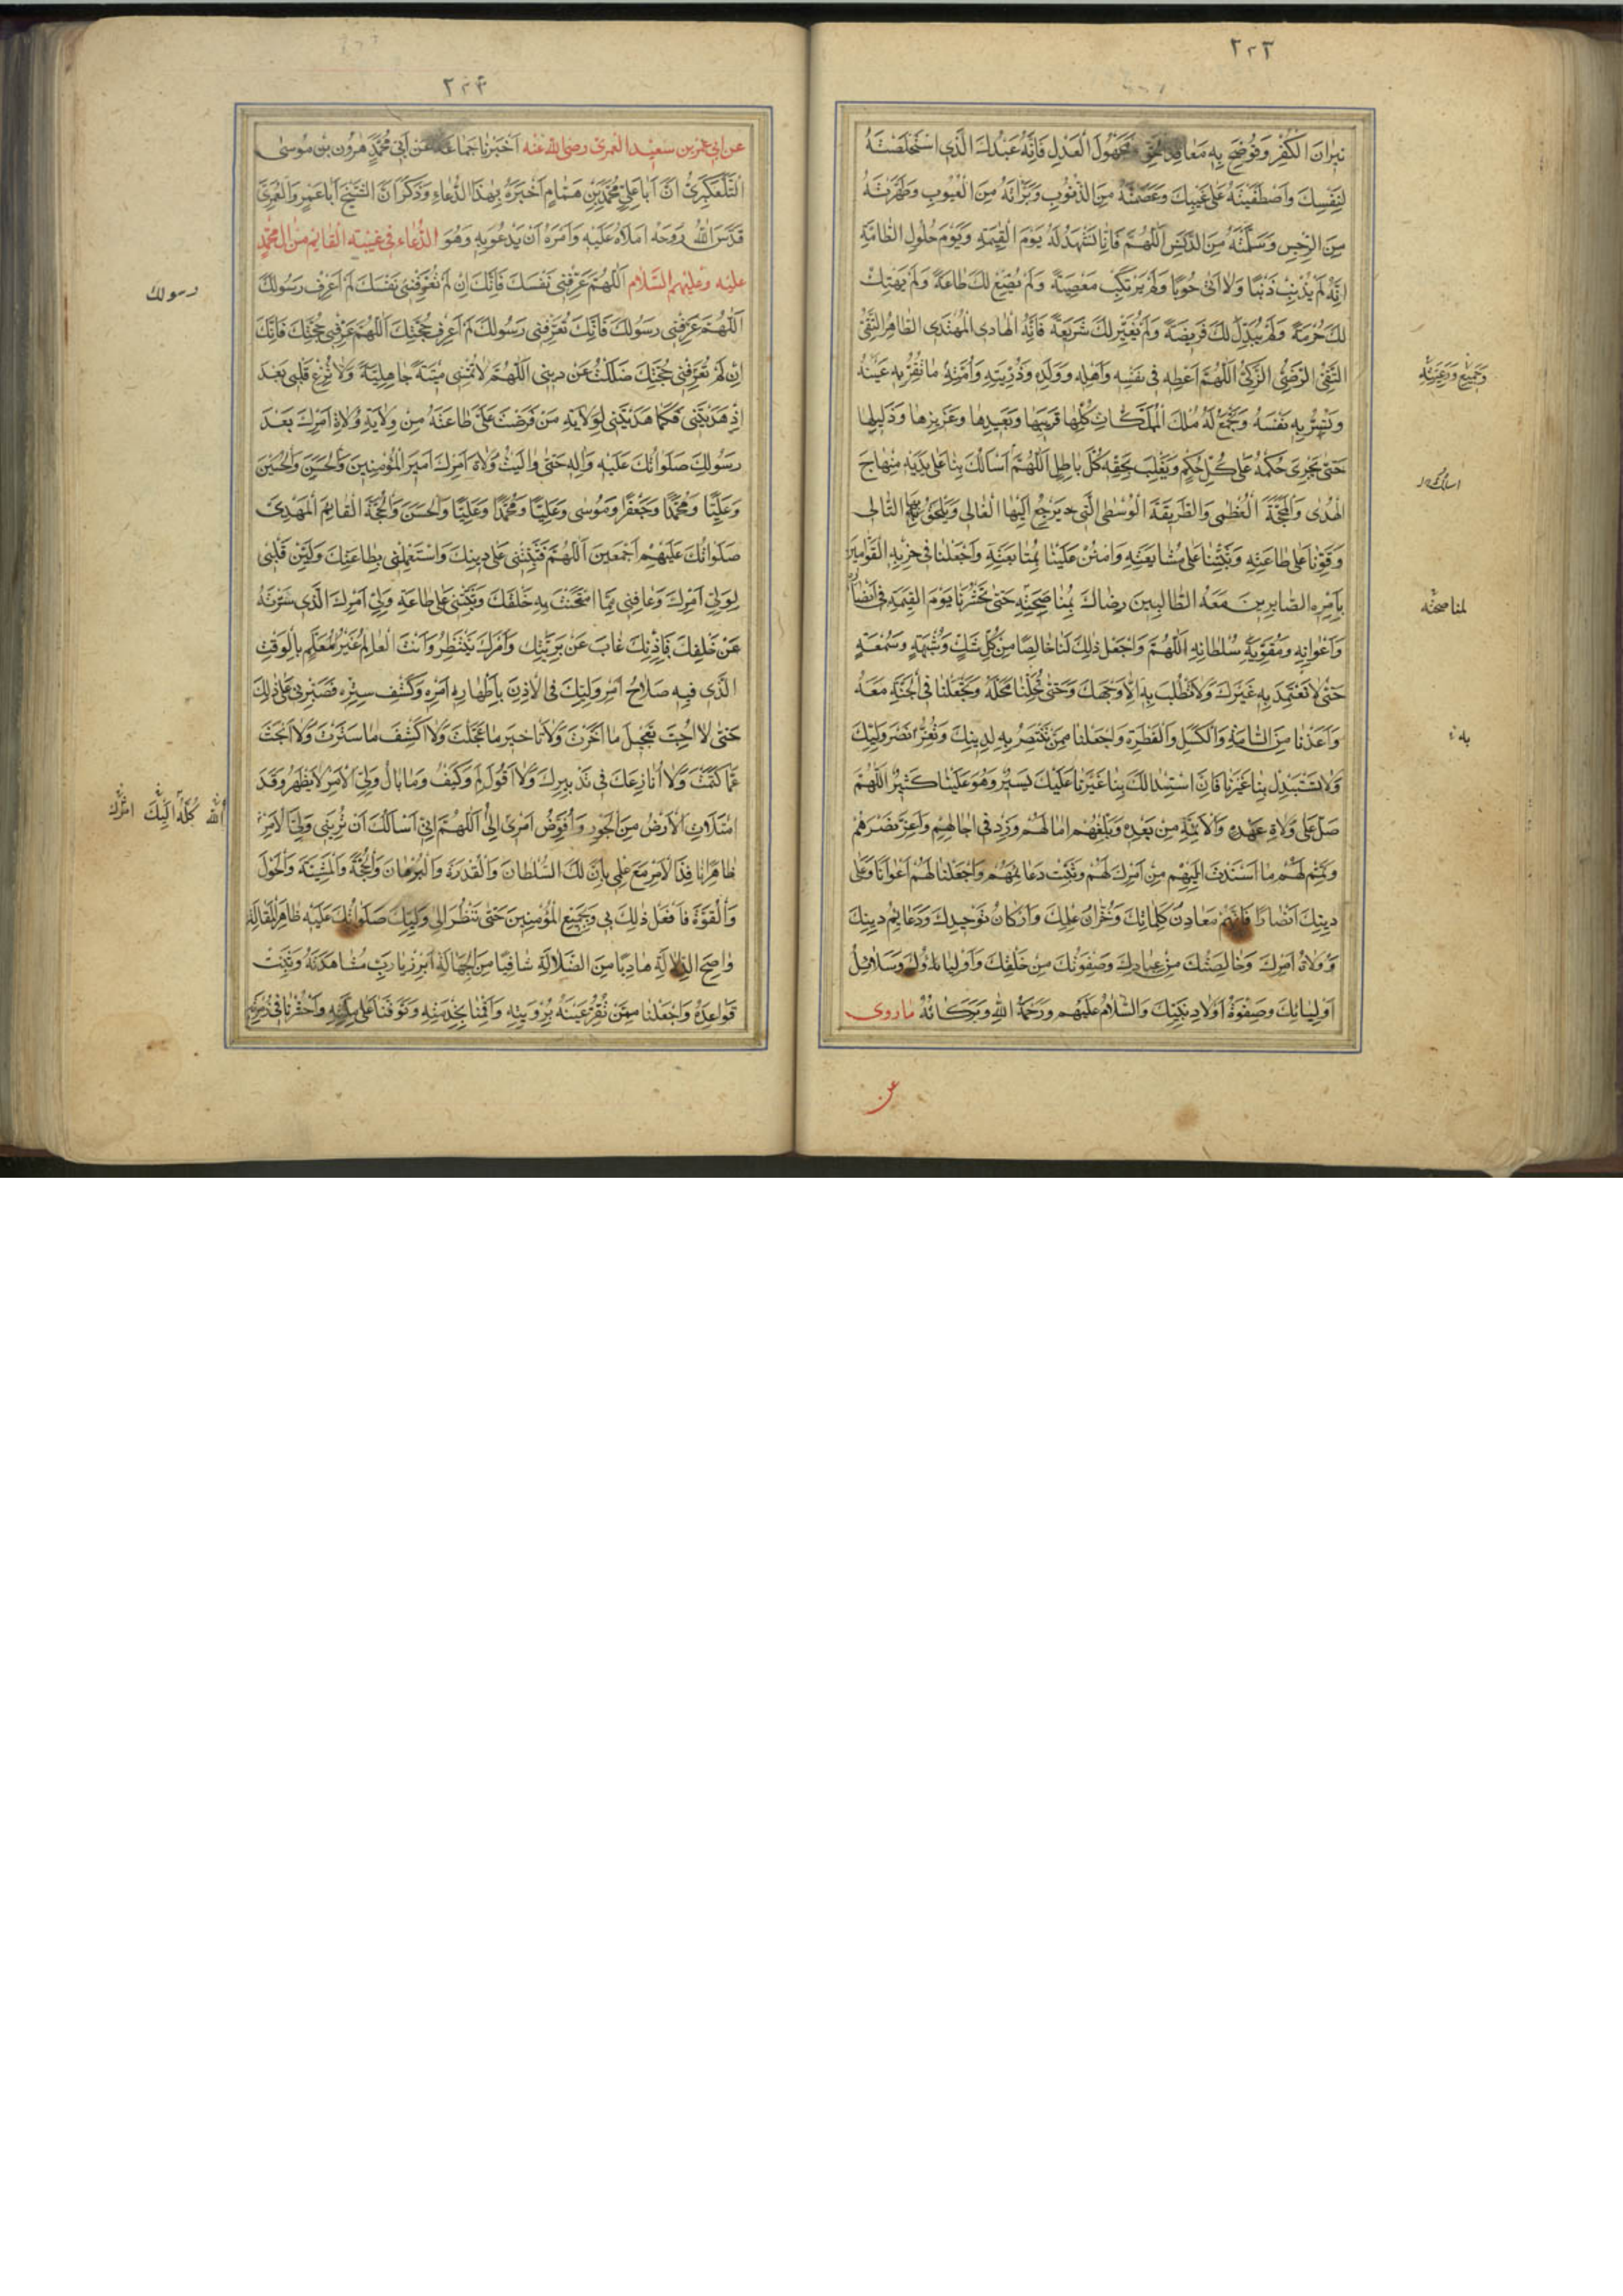 ٢٢٣
نيرانَ الكُفْرِ وَتُوضِحَ بِهِ مَعاقِدَ الحَقِّ وَمَجْهُولَ العَدْلِ فَاِنَّهُ عَبْدُكَ الَّذِي اسْتَخْلَصْتَهُ
لِنَفْسِكَ وَاصْطَفَيْتَهُ عَلى غَيْبِكَ وَعَصَمْتَهُ مِنَ الذُّنُوبِ وَبَرَّأْتَهُ مِنَ العُيُوبِ وَطَهَّرْتَهُ
مِنَ الرِّجْسِ وَسَلَّمْتَهُ مِنَ الدَّنَسِ اَللّهُمَّ فَاِنّا نَشْهَدُ لَهُ يَوْمَ القِيمَةِ وَيَوْمَ حُلُولِ الطّامَّةِ
اَنَّهُ لَمْ يُذْنِبْ ذَنْبًا وَلا اَتى حُوبًا وَلَمْ يَرْتَكِبْ مَعْصِيَةً وَلَمْ يُضَيِّعْ لَكَ طاعَةً وَلَمْ يَهْتِكْ
لَكَ حُرْمَةً وَلَمْ يُبَدِّلْ لَكَ فَرِيضَةً وَلَمْ يُغَيِّرْ لَكَ شَرِيعَةً فَاِنَّهُ الهادِى المُهْتَدِى الطّاهِرُ التَّقِىُّ
النَّقِىُّ الرَّضِىُّ الزَّكِىُّ اَللّهُمَّ اَعْطِهِ فى نَفْسِهِ وَاَهْلِهِ وَوَلَدِهِ وَذُرِّيَّتِهِ وَاُمَّتِهِ ما تُقِرُّ بِهِ عَيْنَهُ
وَجَميعِ رَعِيَّتِهِ
وَتَسُرُّ بِهِ نَفْسَهُ وَتَجْمَعُ لَهُ مُلْكَ المُمَلَّكاتِ كُلِّها قَرِيبِها وَبَعِيدِها وَعَزِيزِها وَذَلِيلِها
حَتّى يَجْرِىَ حُكْمُهُ عَلى كُلِّ حُكْمٍ وَيَغْلِبَ بِحَقِّهِ كُلَّ باطِلٍ اَللّهُمَّ اَسْاَلُكَ بِنا عَلى يَدَيْهِ مِنْهاجَ
الهُدى وَالمَحَجَّةَ العُظْمى وَالطَّرِيقَةَ الوُسْطَى الَّتِى يَرْجِعُ اِلَيْهَا الغالِى وَيَلْحَقُ بِهَا التّالِى
وَقَوِّنا عَلى طاعَتِهِ وَثَبِّتْنا عَلى مُشايَعَتِهِ وَامْنُنْ عَلَيْنا بِمُتابَعَتِهِ وَاجْعَلْنا فى حِزْبِهِ القَوّامِينَ
بِاَمْرِهِ الصّابِرِينَ مَعَهُ الطّالِبِينَ رِضاكَ بِمُناصَحَتِهِ حَتّى تَحْشُرَنا يَوْمَ القِيمَةِ فى اَنْصارِهِ
لمناصحته
وَاَعْوانِهِ وَمُقَوِّيَةِ سُلْطانِهِ اَللّهُمَّ وَاجْعَلْ ذلِكَ لَنا خالِصًا مِنْ كُلِّ شَكٍّ وَشُبْهَةٍ وَسُمْعَةٍ
حَتّى لا نَعْتَمِدَ بِهِ غَيْرَكَ وَلا نَطْلُبَ بِهِ اِلّا وَجْهَكَ وَحَتّى تُحِلَّنا مَحَلَّهُ وَتَجْعَلَنا فِى الجَنَّةِ مَعَهُ
وَاَعِذْنا مِنَ السَّامَةِ وَالكَسَلِ وَالفَتْرَةِ وَاجْعَلْنا مِمَّنْ تَنْتَصِرُ بِهِ لِدِينِكَ وَتُعِزُّ نَصْرَ وَلِيِّكَ
به
وَلا تَسْتَبْدِلْ بِنا غَيْرَنا فَاِنَّ اسْتِبْدالَكَ بِنا غَيْرَنا عَلَيْكَ يَسِيرٌ وَهُوَ عَلَيْنا كَثِيرٌ اَللّهُمَّ
صَلِّ عَلى وُلاةِ عَهْدِهِ وَالاَئِمَّةِ مِنْ بَعْدِهِ وَبَلِّغْهُمْ امالَهُمْ وَزِدْ فى اجالِهِمْ وَاَعِزَّ نَصْرَهُمْ
وَتَمِّمْ لَهُمْ ما اَسْنَدْتَ اِلَيْهِمْ مِنْ اَمْرِكَ لَهُمْ وَثَبِّتْ دَعائِمَهُمْ وَاجْعَلْنا لَهُمْ اَعْوانًا وَعَلى
دِينِكَ اَنْصارًا فَاِنَّهُمْ مَعادِنُ كَلِماتِكَ وَخُزّانُ عِلْمِكَ وَاَرْكانُ تَوْحِيدِكَ وَدَعائِمُ دِينِكَ
وَوُلاةُ اَمْرِكَ وَخالِصَتُكَ مِنْ عِبادِكَ وَصَفْوَتُكَ مِنْ خَلْقِكَ وَاَوْلِياؤُكَ وَسَلائِلُ
اَوْلِيائِكَ وَصَفْوَةُ اَوْلادِ نَبِيِّكَ وَالسَّلامُ عَلَيْهِمْ وَرَحْمَةُ اللّهِ وَبَرَكاتُهُ ما روى
عن
٢٢۴
عن ابى عمرو بن سعيد العمرى رضى الله عنه اَخْبَرَنا جَماعَةٌ عَنْ اَبى مُحَمَّدٍ هرُونَ بْنِ مُوسى
التَّلَّعُكْبَرِىِّ اَنَّ اَبا عَلِىٍّ مُحَمَّدَ بْنَ هَمّامٍ اَخْبَرَهُ بِهذَا الدُّعاءِ وَذَكَرَ اَنَّ الشَّيْخَ اَبا عَمْرٍو العَمْرِىَّ
قَدَّسَ اللّهُ رُوحَهُ اَمْلاهُ عَلَيْهِ وَاَمَرَهُ اَنْ يَدْعُوَ بِهِ وَهُوَ الدُّعاء فى غيبة القائم من ال محمّد
عليه وعليهم السَّلام اَللّهُمَّ عَرِّفْنِى نَفْسَكَ فَاِنَّكَ اِنْ لَمْ تُعَرِّفْنِى نَفْسَكَ لَمْ اَعْرِفْ رَسُولَكَ
رسولك
اَللّهُمَّ عَرِّفْنِى رَسُولَكَ فَاِنَّكَ تُعَرِّفْنِى رَسُولَكَ لَمْ اَعْرِفْ حُجَّتَكَ اَللّهُمَّ عَرِّفْنِى حُجَّتَكَ فَاِنَّكَ
اِنْ لَمْ تُعَرِّفْنِى حُجَّتَكَ ضَلَلْتُ عَنْ دِينِى اَللّهُمَّ لا تُمِتْنِى مِيتَةً جاهِلِيَّةً وَلا تُزِغْ قَلْبِى بَعْدَ
اِذْ هَدَيْتَنِى فَكَما هَدَيْتَنِى لِوِلايَةِ مَنْ فَرَضْتَ عَلَىَّ طاعَتَهُ مِنْ وِلايَةِ وُلاةِ اَمْرِكَ بَعْدَ
رَسُولِكَ صَلَواتُكَ عَلَيْهِ وَالِهِ حَتّى والَيْتُ وُلاةَ اَمْرِكَ اَمِيرَ المُؤْمِنِينَ وَالحَسَنَ وَالحُسَيْنَ
وَعَلِيًّا وَمُحَمَّدًا وَجَعْفَرًا وَمُوسى وَعَلِيًّا وَمُحَمَّدًا وَعَلِيًّا وَالحَسَنَ وَالحُجَّةَ القائِمَ المَهْدِىَّ
صَلَواتُكَ عَلَيْهِمْ اَجْمَعِينَ اَللّهُمَّ فَثَبِّتْنِى عَلى دِينِكَ وَاسْتَعْمِلْنِى بِطاعَتِكَ وَلَيِّنْ قَلْبِى
لِوَلِىِّ اَمْرِكَ وَعافِنِى مِمَّا امْتَحَنْتَ بِهِ خَلْقَكَ وَثَبِّتْنِى عَلى طاعَةِ وَلِىِّ اَمْرِكَ الَّذِى سَتَرْتَهُ
عَنْ خَلْقِكَ فَبِاِذْنِكَ غابَ عَنْ بَرِيَّتِكَ وَاَمْرَكَ يَنْتَظِرُ وَاَنْتَ العالِمُ غَيْرُ المُعَلَّمِ بِالوَقْتِ
الَّذِى فِيهِ صَلاحُ اَمْرِ وَلِيِّكَ فِى الاِذْنِ بِاِظْهارِهِ اَمْرِهِ وَكَشْفِ سِتْرِهِ فَصَبِّرْنِى عَلى ذلِكَ
حَتّى لا اُحِبَّ تَعْجِيلَ ما اَخَّرْتَ وَلا تَاْخِيرَ ما عَجَّلْتَ وَلا اَكْشِفَ ما سَتَرْتَ وَلا اَبْحَثَ
عَمّا كَتَمْتَ وَلا اُنازِعَكَ فى تَدْبِيرِكَ وَلا اَقُولَ لِمَ وَكَيْفَ وَما بالُ وَلِىِّ الاَمْرِ لا يَظْهَرُ وَقَدِ
امْتَلَاَتِ الاَرْضُ مِنَ الجَوْرِ وَاُفَوِّضُ اَمْرِى اِلى اَللّهُمَّ اِنِّى اَسْاَلُكَ اَنْ تُرِيَنِى وَلِىَّ الاَمْرِ
اللّه كُلَّها اِلَيْكَ امرك
ظاهِرًا نافِذَ الاَمْرِ مَعَ عِلْمِى بِاَنَّ لَكَ السُّلْطانَ وَالقُدْرَةَ وَالبُرْهانَ وَالحُجَّةَ وَالمَشِيَّةَ وَالحَوْلَ
وَالقُوَّةَ فَافْعَلْ ذلِكَ بِى وَبِجَمِيعِ المُؤْمِنِينَ حَتّى نَنْظُرَ اِلى وَلِيِّكَ صَلَواتُكَ عَلَيْهِ ظاهِرَ المَقالَةِ
واضِحَ الدِّلالَةِ هادِيًا مِنَ الضَّلالَةِ شافِيًا مِنَ الجَهالَةِ اَبْرِزْ يا رَبِّ مُشاهَدَتَهُ وَثَبِّتْ
قَواعِدَهُ وَاجْعَلْنا مِمَّنْ تُقِرُّ عَيْنَهُ بِرُؤْيَتِهِ وَاَقِمْنا بِخِدْمَتِهِ وَتَوَفَّنا عَلى مِلَّتِهِ وَاحْشُرْنا فى زُمْرَتِهِ